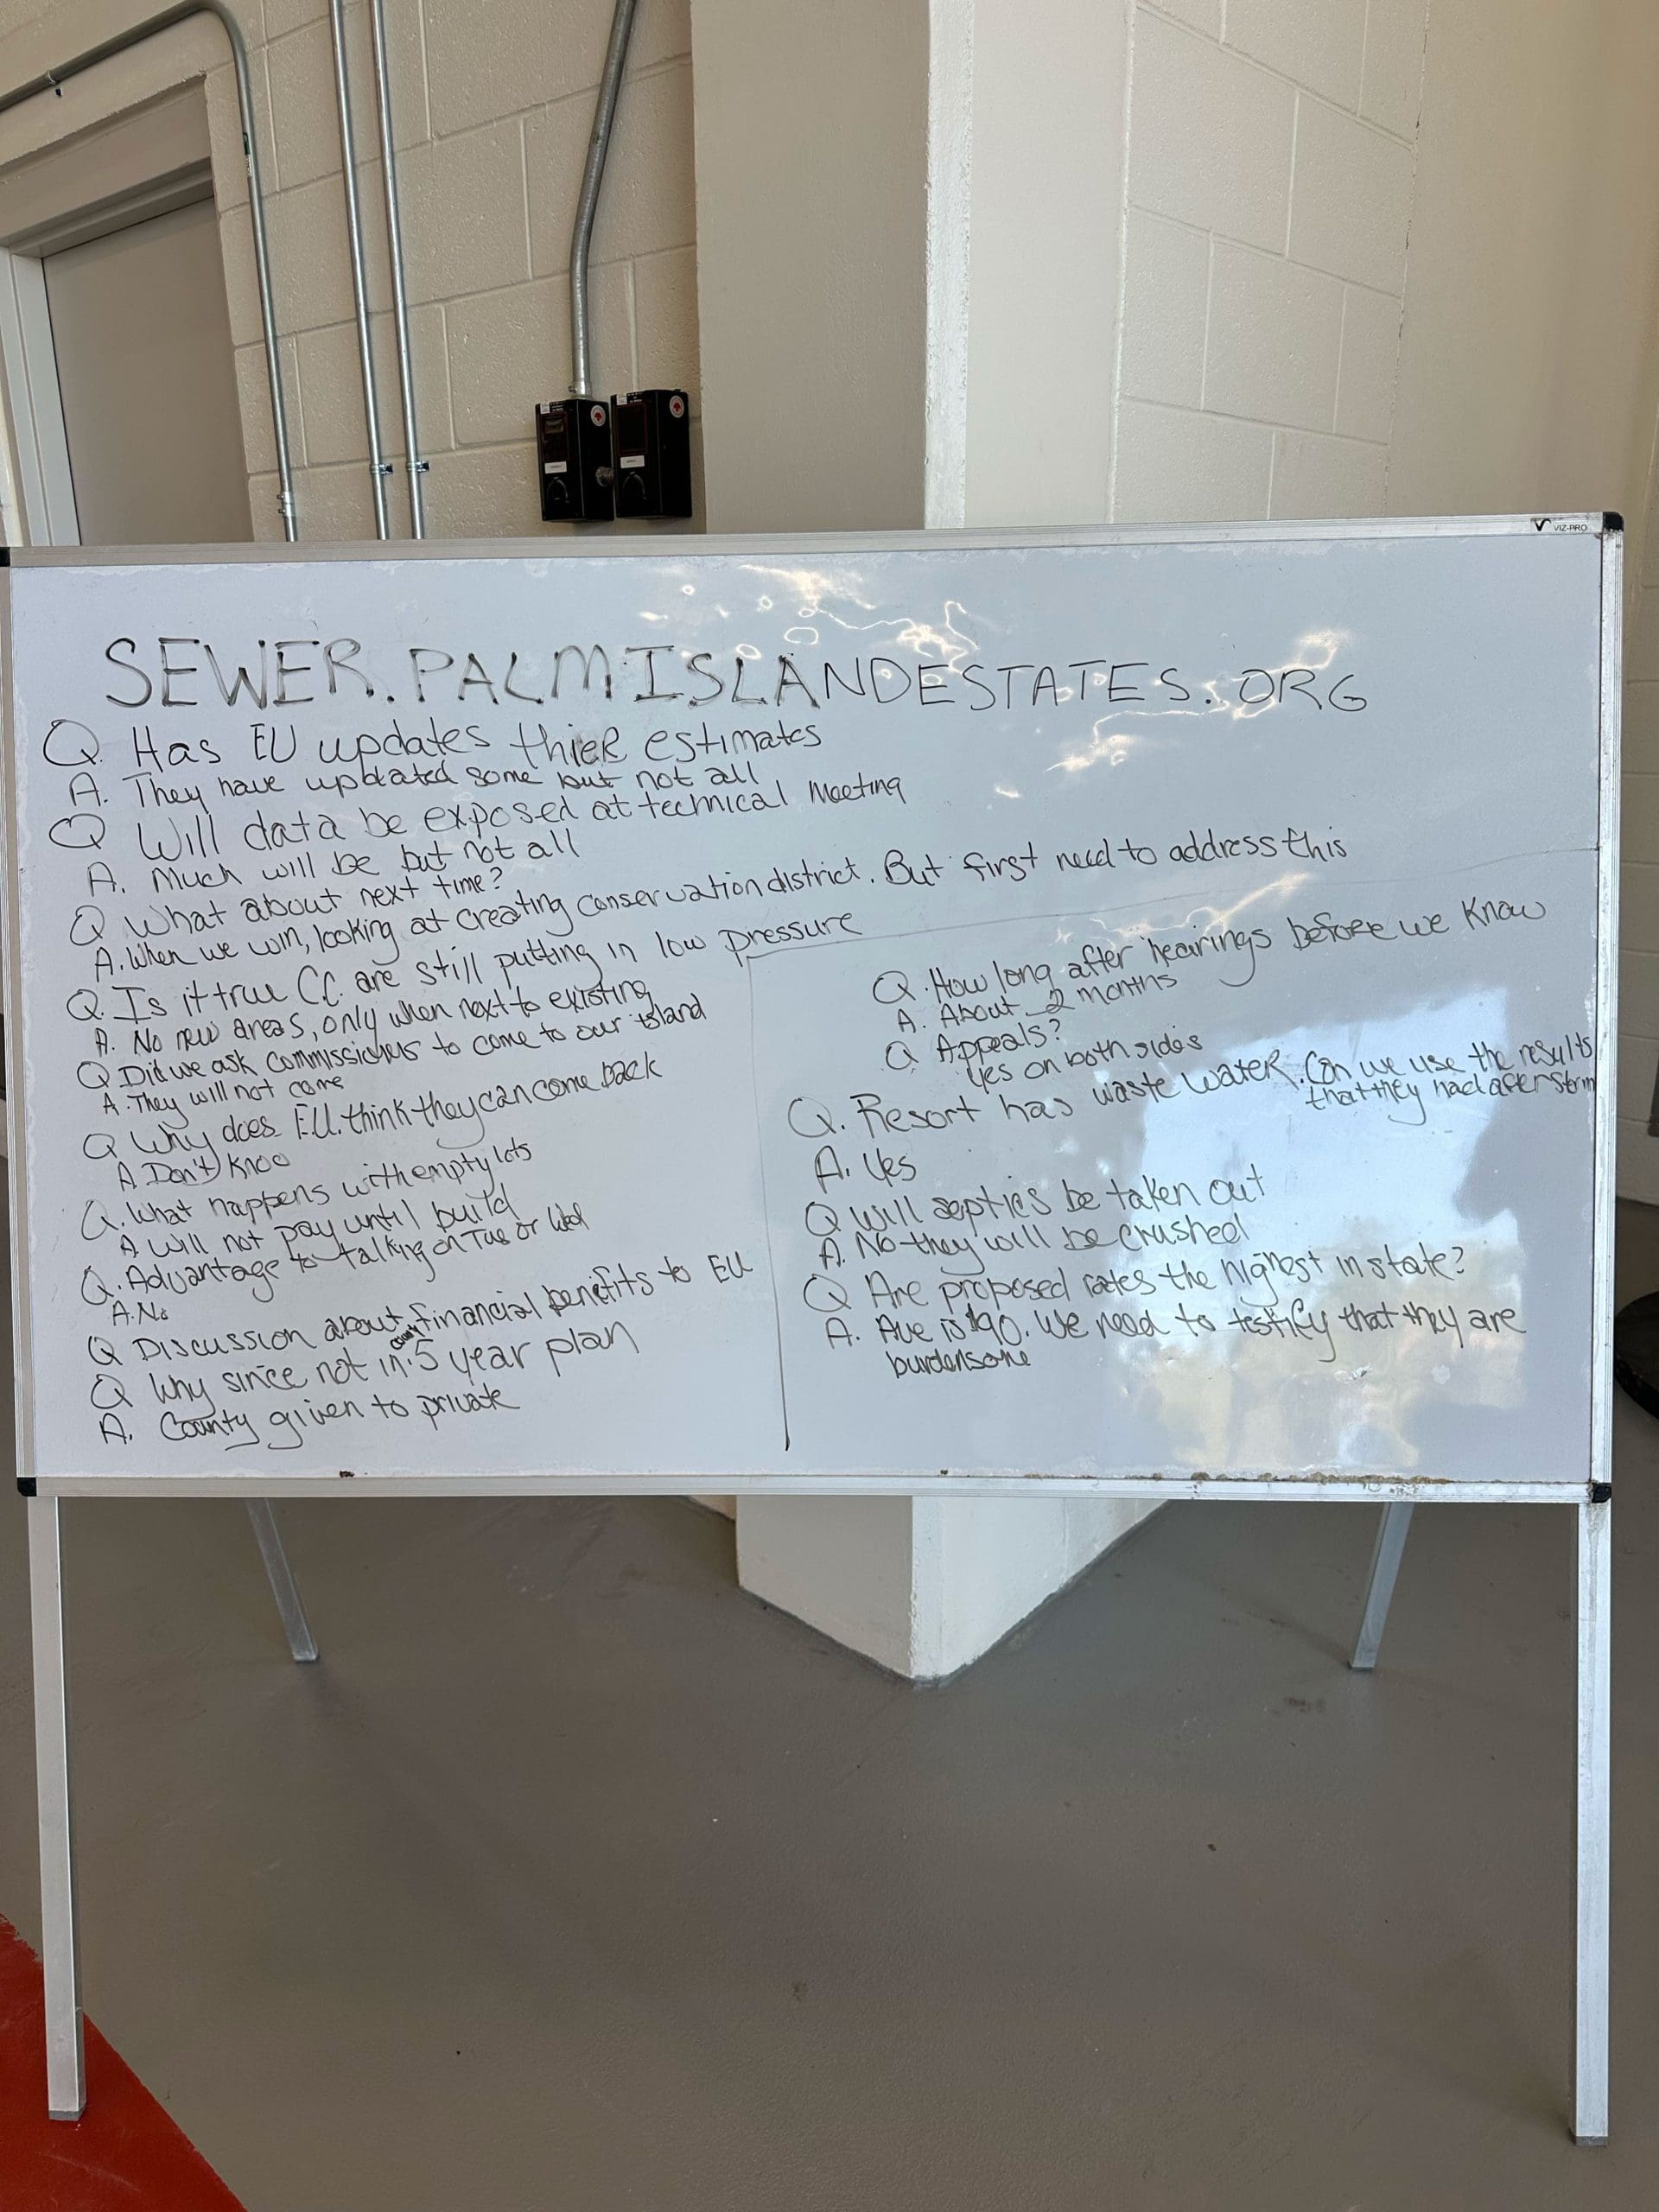 VIZ-PRO
SEWER.PALMISLANDESTATES.ORG
Q Has EU updates thier estimates
A. They have updated some but not all
Q Will data be exposed at technical Meeting
A. Much will be but not all
Q What about next time?
A. When we win, looking at creating conservation district. But first need to address this
Q. Is it true C.C. are still putting in low pressure
A. No new areas, only when next to existing
Q Did we ask commissioners to come to our island
A. They will not come
Q Why does E.U. think they can come back
A. Don't know
Q. What happens with empty lots
A Will not pay until build
Q. Advantage to talking on Tue or Wed
A. No
Q Discussion about financial benefits to EU
Q Why since not in county 5 year plan
A. County given to private
Q. How long after hearings before we know
A. About 2 months
Q Appeals?
Yes on both sides
Q. Resort has waste water. Can we use the results
that they had after storm
A. Yes
Q Will septics be taken out
A. No they will be crushed
Q Are proposed rates the highest in state?
A. Ave is $90. We need to testify that they are
burdensome